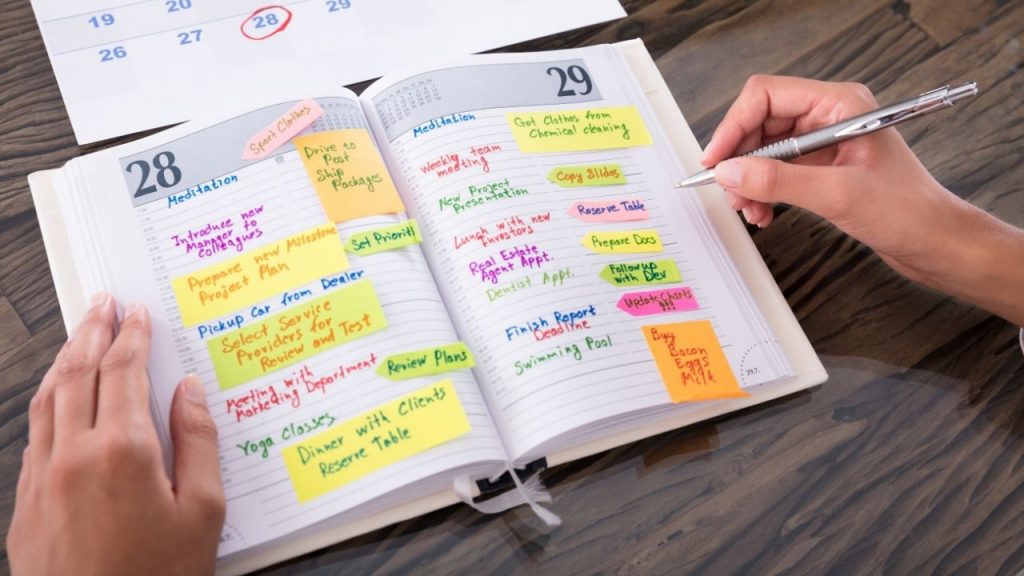 19 20
26 27 28 29
28
Sport Clothes
Meditation
Drive to
Post
Ship
Packages
Introduce new
Manager to
colleagues
Set Prioriti
Prepare new Milestone
Project Plan
Pickup Car from Dealer
Select Service
Providers for
Review and Test
Meeting with
Marketing Department
Review Plans
Yoga Classes
Dinner with Clients
Reserve Table
29
Meditation
Get Clothes from
Chemical cleaning
Weekly team
meeting
Copy Slides
New Project
Presentation
Reserve Table
Lunch with new
Investors
Prepare Docs
Real Estate
Agent Appt.
Follow up
with Dev
Dentist Appt.
Update Charts
Finish Report
Deadline
Buy
Bacon
Eggs
Milk
Swimming Pool